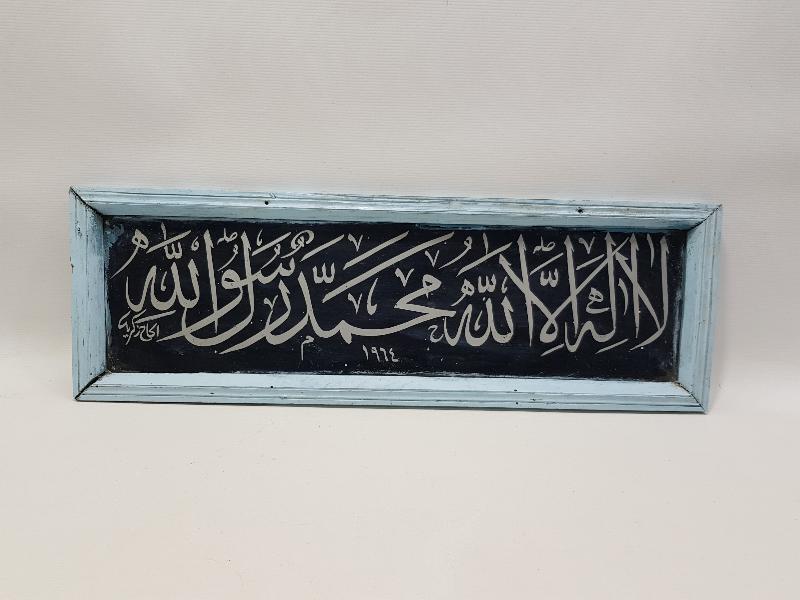 لا اله الا الله محمد رسول الله
الحاج زكريا
١٩٦٤